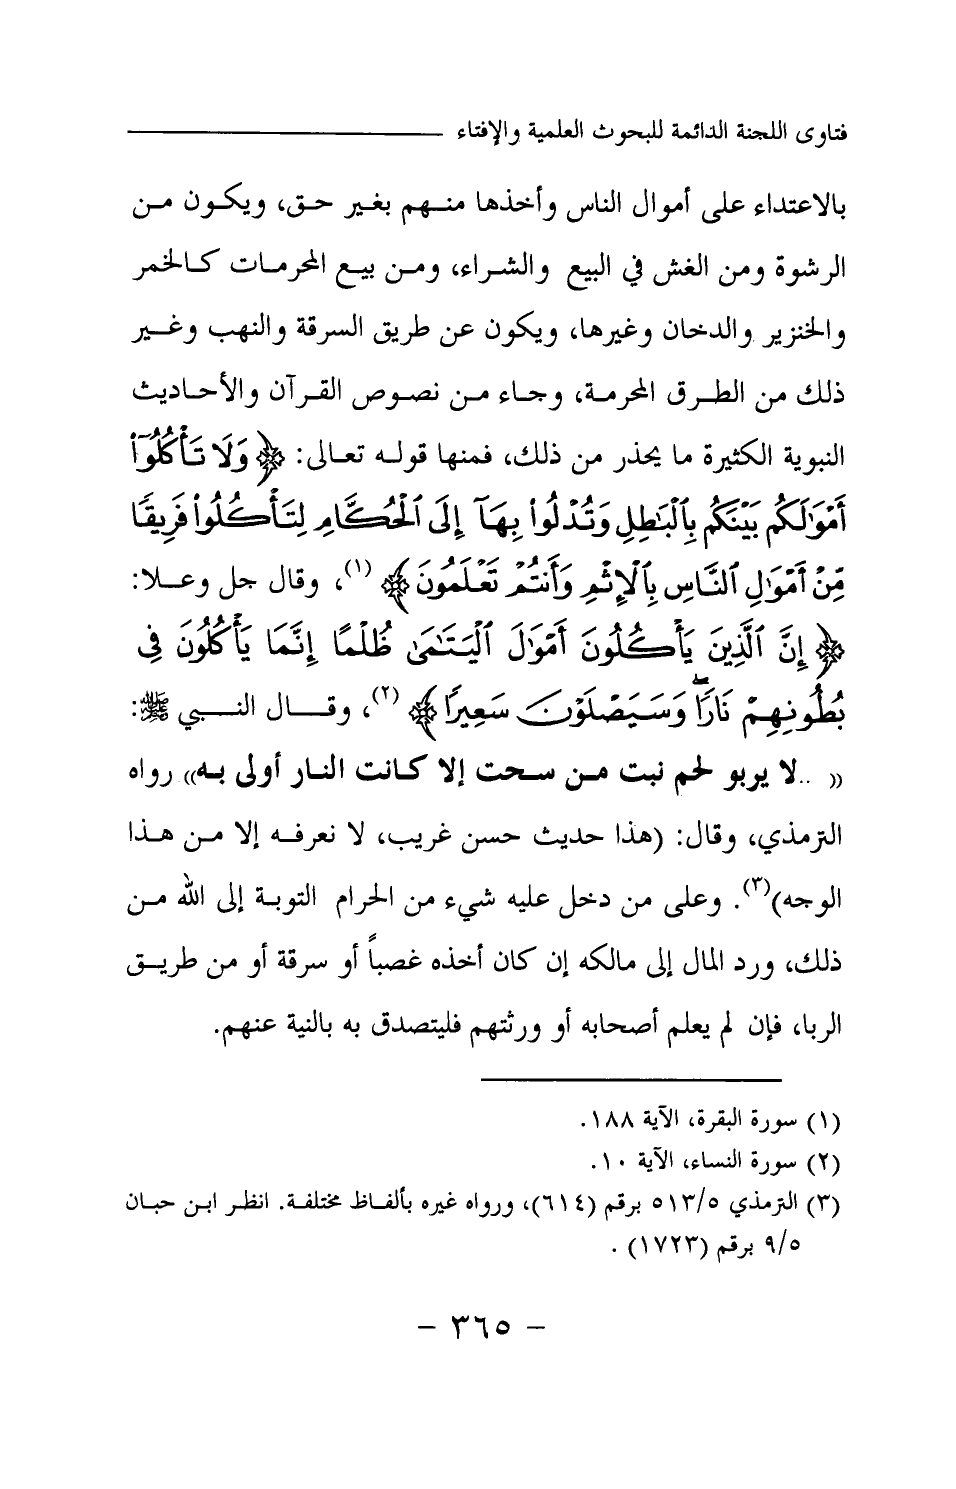 فتاوى اللجنة الدائمة للبحوث العلمية والإفتاء
بالاعتداء على أموال الناس وأخذها منهم بغير حق، ويكون من
الرشوة ومن الغش في البيع والشراء، ومن بيع المحرمات كالخمر
والخنزير والدخان وغيرها، ويكون عن طريق السرقة والنهب وغير
ذلك من الطرق المحرمة، وجاء من نصوص القرآن والأحاديث
النبوية الكثيرة ما يحذر من ذلك، فمنها قوله تعالى: ﴿ وَلَا تَأْكُلُوٓا۟
أَمْوَٰلَكُم بَيْنَكُم بِٱلْبَٰطِلِ وَتُدْلُوا۟ بِهَآ إِلَى ٱلْحُكَّامِ لِتَأْكُلُوا۟ فَرِيقًا
مِّنْ أَمْوَٰلِ ٱلنَّاسِ بِٱلْإِثْمِ وَأَنتُمْ تَعْلَمُونَ ﴾ (١)، وقال جل وعلا:
﴿ إِنَّ ٱلَّذِينَ يَأْكُلُونَ أَمْوَٰلَ ٱلْيَتَٰمَىٰ ظُلْمًا إِنَّمَا يَأْكُلُونَ فِى
بُطُونِهِمْ نَارًا ۖ وَسَيَصْلَوْنَ سَعِيرًا ﴾ (٢)، وقال النبي ﷺ:
(( ..لا يربو لحم نبت من سحت إلا كانت النار أولى به)) رواه
الترمذي، وقال: (هذا حديث حسن غريب، لا نعرفه إلا من هذا
الوجه)(٣). وعلى من دخل عليه شيء من الحرام التوبة إلى الله من
ذلك، ورد المال إلى مالكه إن كان أخذه غصباً أو سرقة أو من طريق
الربا، فإن لم يعلم أصحابه أو ورثتهم فليتصدق به بالنية عنهم.
(١) سورة البقرة، الآية ١٨٨.
(٢) سورة النساء، الآية ١٠.
(٣) الترمذي ٥١٣/٥ برقم (٦١٤)، ورواه غيره بألفاظ مختلفة. انظر ابن حبان
٩/٥ برقم (١٧٢٣) .
- ٣٦٥ -